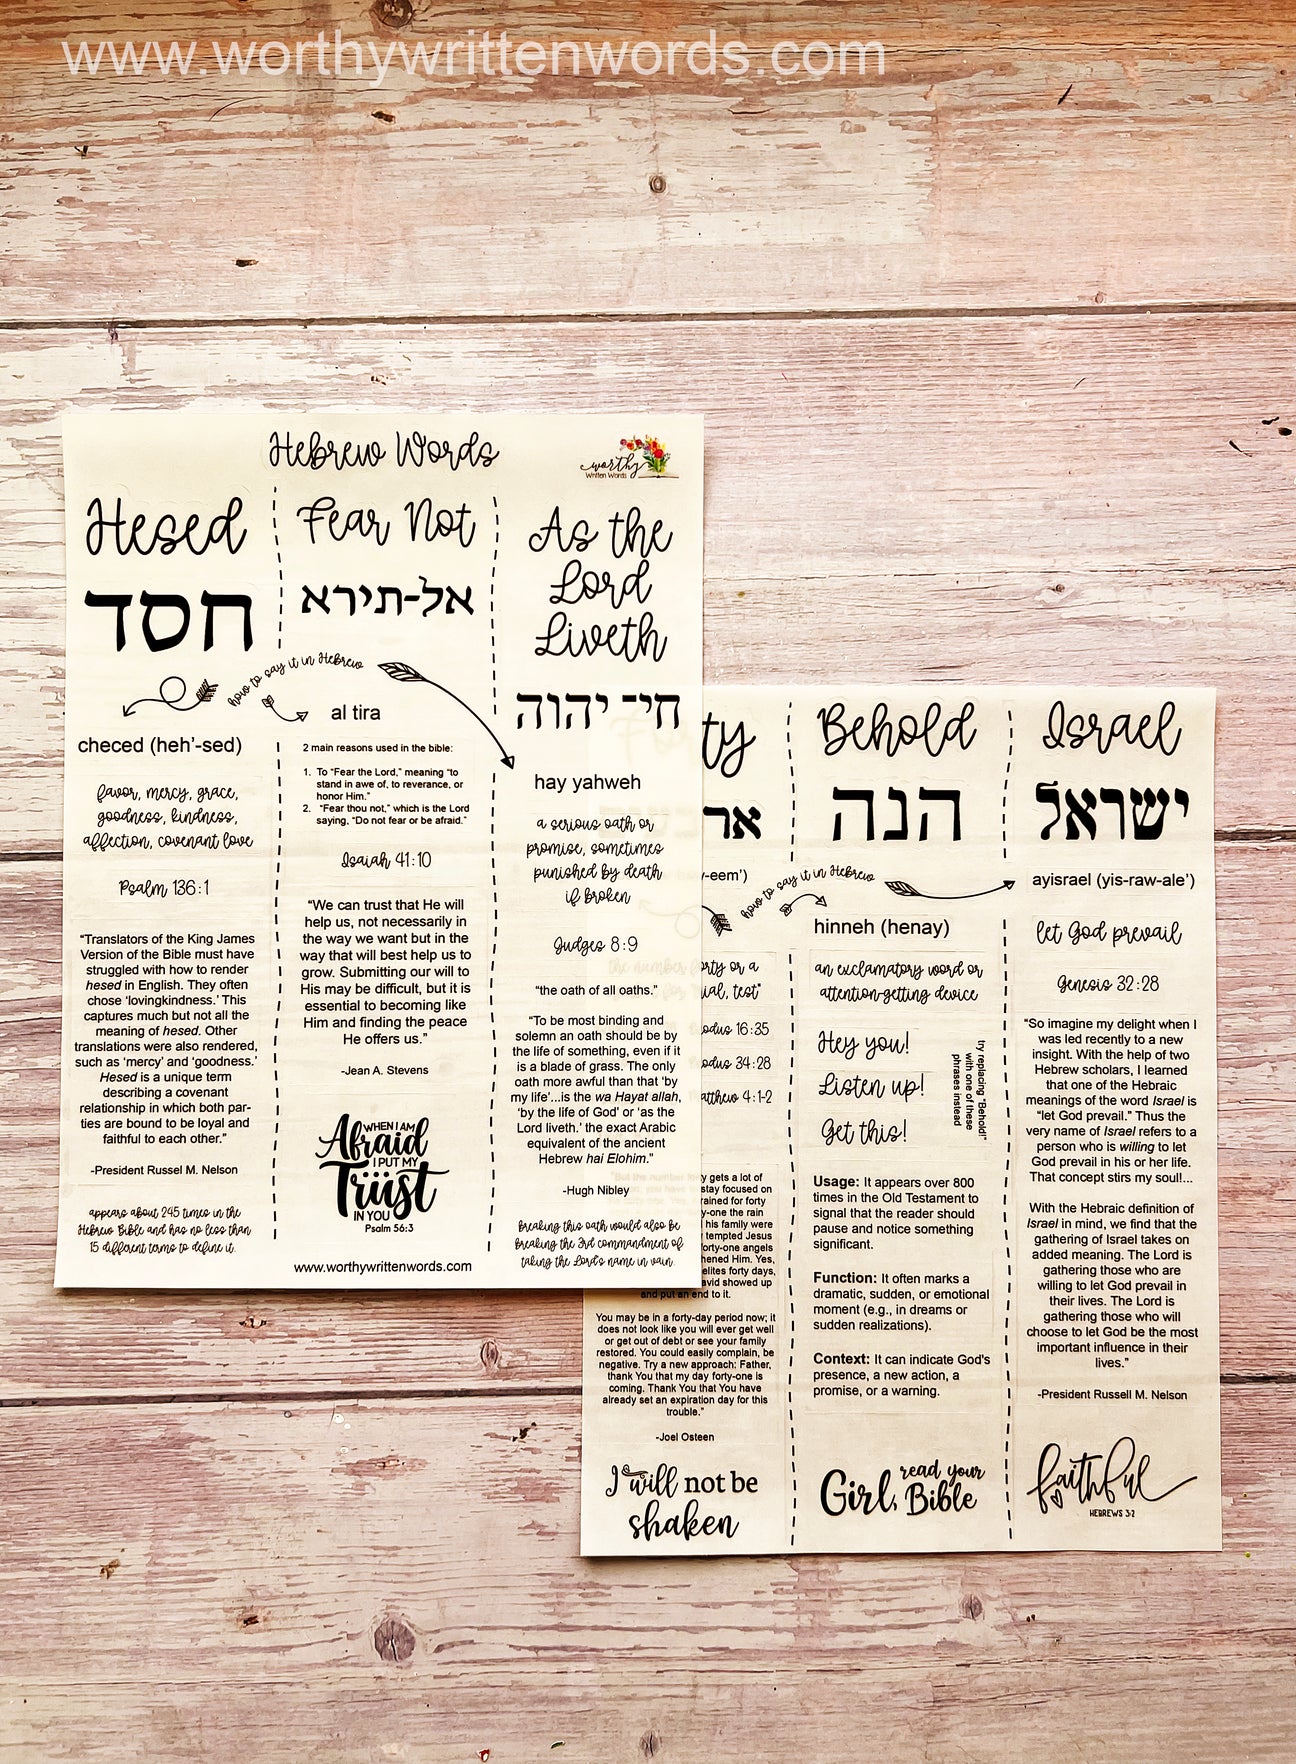 www.worthywrittenwords.com
Hebrew Words
worthy
Written Words
Hesed
חסד
how to say it in Hebrew
checed (heh'-sed)
favor, mercy, grace,
goodness, kindness,
affection, covenant love
Psalm 136:1
"Translators of the King James
Version of the Bible must have
struggled with how to render
hesed in English. They often
chose 'lovingkindness.' This
captures much but not all the
meaning of hesed. Other
translations were also rendered,
such as 'mercy' and 'goodness.'
Hesed is a unique term
describing a covenant
relationship in which both par-
ties are bound to be loyal and
faithful to each other."
-President Russel M. Nelson
appears about 245 times in the
Hebrew Bible and has no less than
15 different terms to define it.
Fear Not
אל-תירא
al tira
2 main reasons used in the bible:
1. To "Fear the Lord," meaning "to
stand in awe of, to reverance, or
honor Him."
2. "Fear thou not," which is the Lord
saying, "Do not fear or be afraid."
Isaiah 41:10
"We can trust that He will
help us, not necessarily in
the way we want but in the
way that will best help us to
grow. Submitting our will to
His may be difficult, but it is
essential to becoming like
Him and finding the peace
He offers us."
-Jean A. Stevens
WHEN I AM
Afraid
I PUT MY
Trust
IN YOU
Psalm 56:3
www.worthywrittenwords.com
As the
Lord
Liveth
חי־ יהוה
hay yahweh
a serious oath or
promise, sometimes
punished by death
if broken
Judges 8:9
"the oath of all oaths."
"To be most binding and
solemn an oath should be by
the life of something, even if it
is a blade of grass. The only
oath more awful than that 'by
my life'...is the wa Hayat allah,
'by the life of God' or 'as the
Lord liveth.' the exact Arabic
equivalent of the ancient
Hebrew hai Elohim."
-Hugh Nibley
Breaking this oath would also be
breaking the 3rd commandment of
taking the Lord's name in vain.
ty
אר
-eem')
how to say it in Hebrew
the number forty or a
ial, test"
odus 16:35
odus 34:28
atthew 4:1-2
"But the number forty gets a lot of
stay focused on
rained for forty
y-one the rain
his family were
tempted Jesus
forty-one angels
hened Him. Yes,
elites forty days,
avid showed up
and put an end to it.
You may be in a forty-day period now; it
does not look like you will ever get well
or get out of debt or see your family
restored. You could easily complain, be
negative. Try a new approach: Father,
thank You that my day forty-one is
coming. Thank You that You have
already set an expiration day for this
trouble."
-Joel Osteen
I will not be
shaken
Behold
הנה
hinneh (henay)
an exclamatory word or
attention-getting device
Hey you!
Listen up!
Get this!
try replacing "Behold!"
with one of these
phrases instead
Usage: It appears over 800
times in the Old Testament to
signal that the reader should
pause and notice something
significant.
Function: It often marks a
dramatic, sudden, or emotional
moment (e.g., in dreams or
sudden realizations).
Context: It can indicate God's
presence, a new action, a
promise, or a warning.
Girl, read your
Bible
Israel
ישראל
ayisrael (yis-raw-ale')
let God prevail
Genesis 32:28
"So imagine my delight when I
was led recently to a new
insight. With the help of two
Hebrew scholars, I learned
that one of the Hebraic
meanings of the word Israel is
"let God prevail." Thus the
very name of Israel refers to a
person who is willing to let
God prevail in his or her life.
That concept stirs my soul!...
With the Hebraic definition of
Israel in mind, we find that the
gathering of Israel takes on
added meaning. The Lord is
gathering those who are
willing to let God prevail in
their lives. The Lord is
gathering those who will
choose to let God be the most
important influence in their
lives."
-President Russell M. Nelson
faithful
HEBREWS 3:2